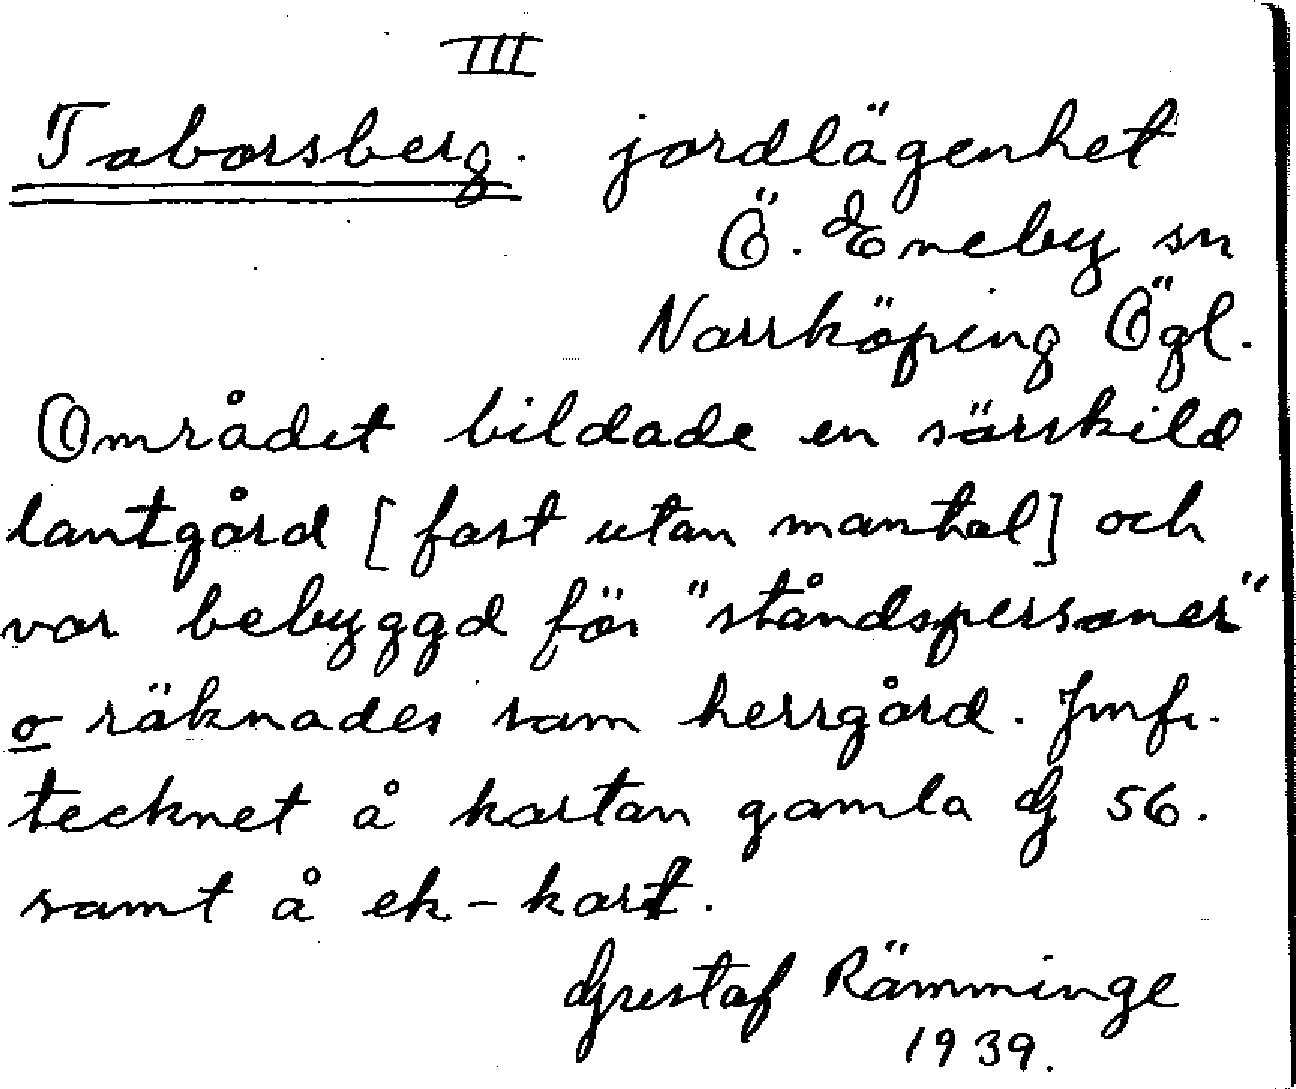 III
Taborsberg. jordlägenhet
Ö. Eneby sn
Norrköping Ögl.
Området bildade en särskild
lantgård [fast utan mantal] och
var bebyggd för "ståndspersoner"
o räknades som herrgård. Jmfr.
tecknet å kartan gamla G 56.
samt å ek-kart.
Gustaf Rämminge
1939.